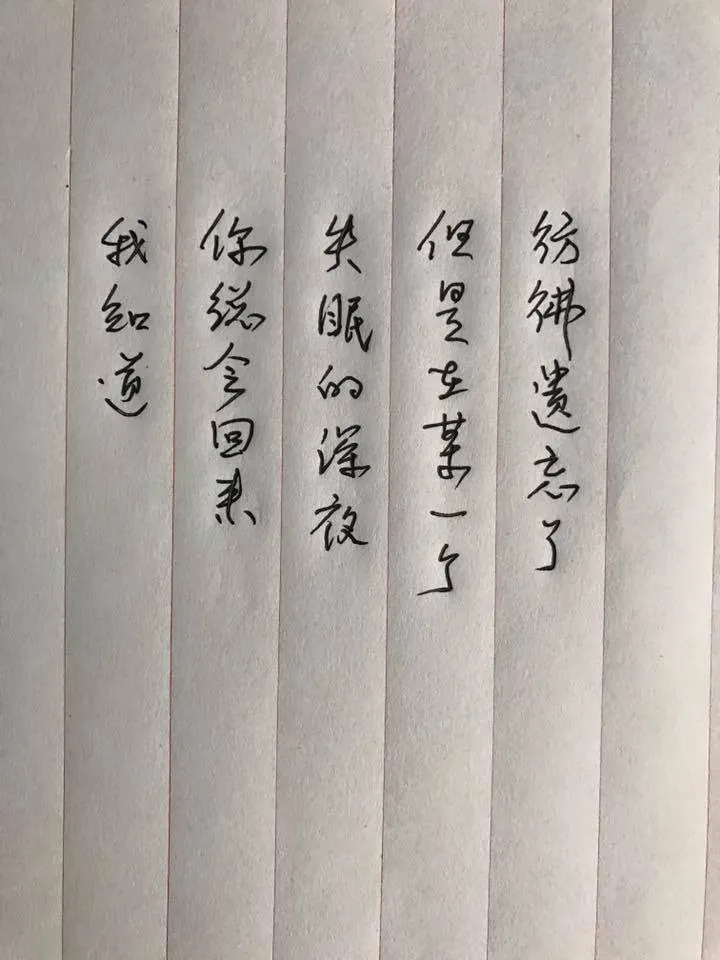 彷彿遺忘了
但是在某一个
失眠的深夜
你總会回来
我知道